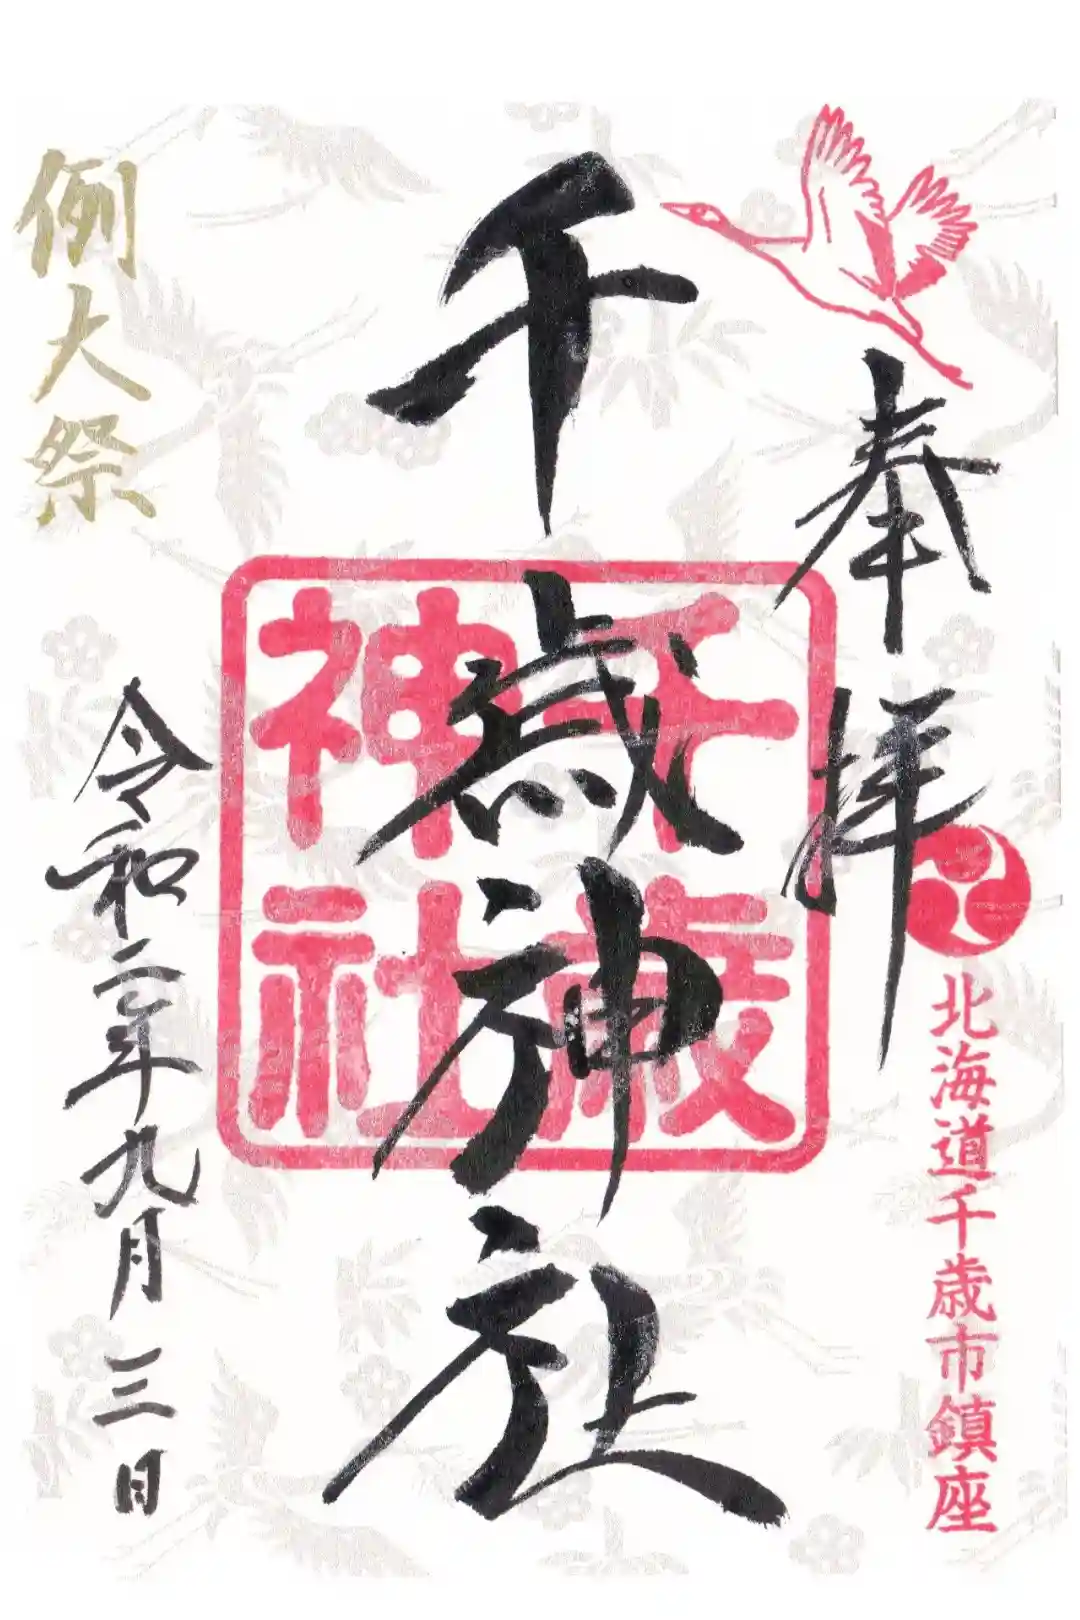 奉拝
北海道千歳市鎮座
千歳神社
千歳
神社
例大祭
令和二年九月三日